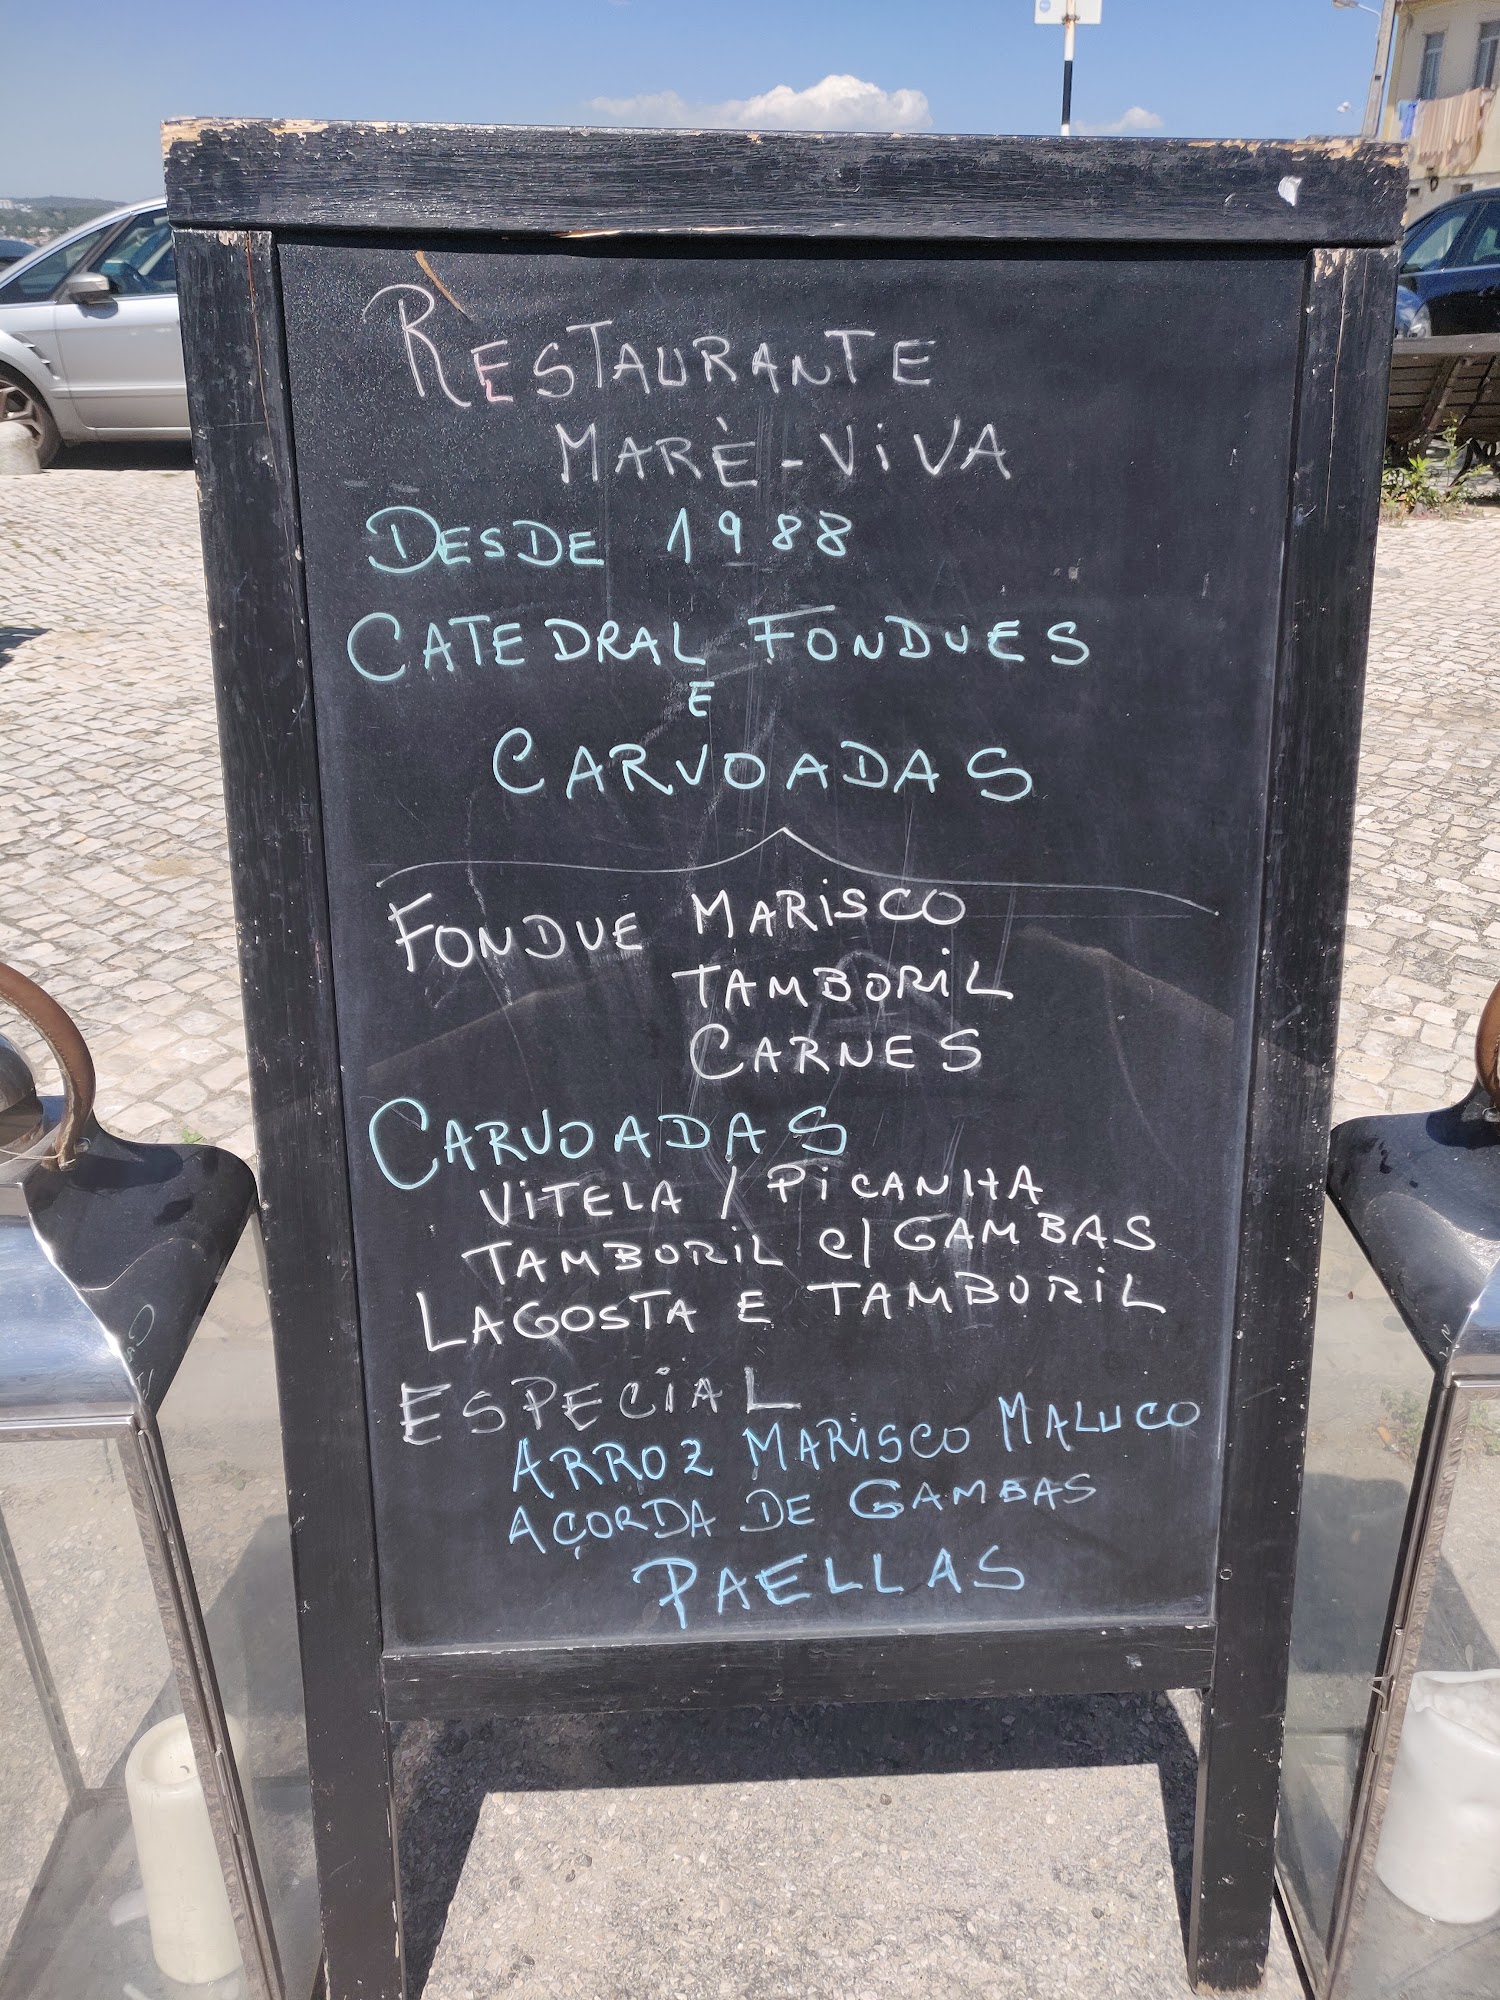 RESTAURANTE
MARÈ-VIVA
DESDE 1988
CATEDRAL FONDUES
E
CARVOADAS
FONDUE MARISCO
TAMBORIL
CARNES
CARVOADAS
VITELA / PICANHA
TAMBORIL C/ GAMBAS
LAGOSTA E TAMBORIL
ESPECIAL
ARROZ MARISCO MALUCO
AÇORDA DE GAMBAS
PAELLAS